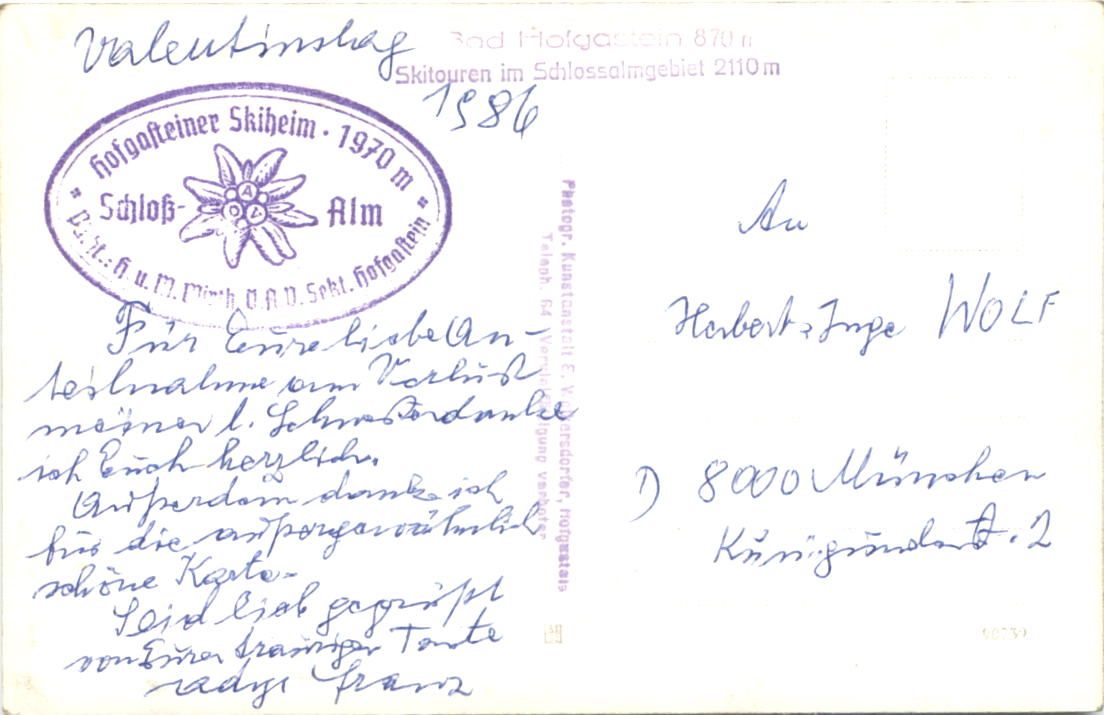 Valentinstag
1986
Bad Hofgastein 870 m
Skitouren im Schlossalmgebiet 2110 m
Hofgasteiner Skiheim · 1970 m
Schloß- Alm
H. u. M. Ö.A.V. Sekt. Hofgastein
Für Eure liebe An-
teilnahme am Verlust
meiner l. Schwester danke
ich Euch herzlich.
Außerdem danke ich
für die außergewöhnlich
schöne Karte.
Seid lieb gegrüßt
von Eurer traurigen Tante
Franz
Photogr. Kunstanstalt E. Hofgastein
Teleph. 64 verboten
An
Herbert + Inge WOLF
D 8000 München
Kunigundenst. 2